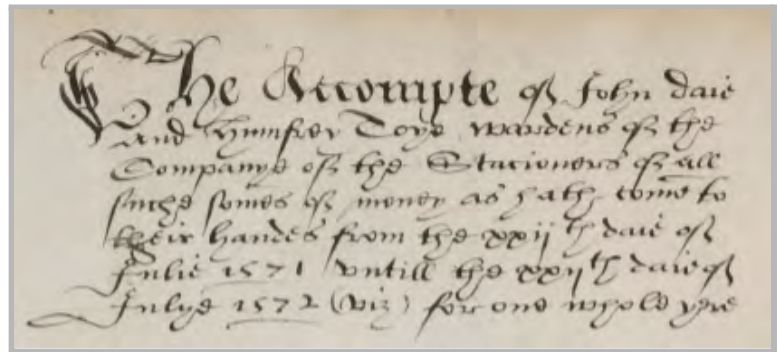 The Accompte of John daie
And Humfrey Toye wardens of the
Companye of the Stacioners of all
suche somes of money as hath come to
their handes from the xxijth daie of
Julie 1571 vntill the xxijth daie of
Julye 1572 (viz) for one whole yere